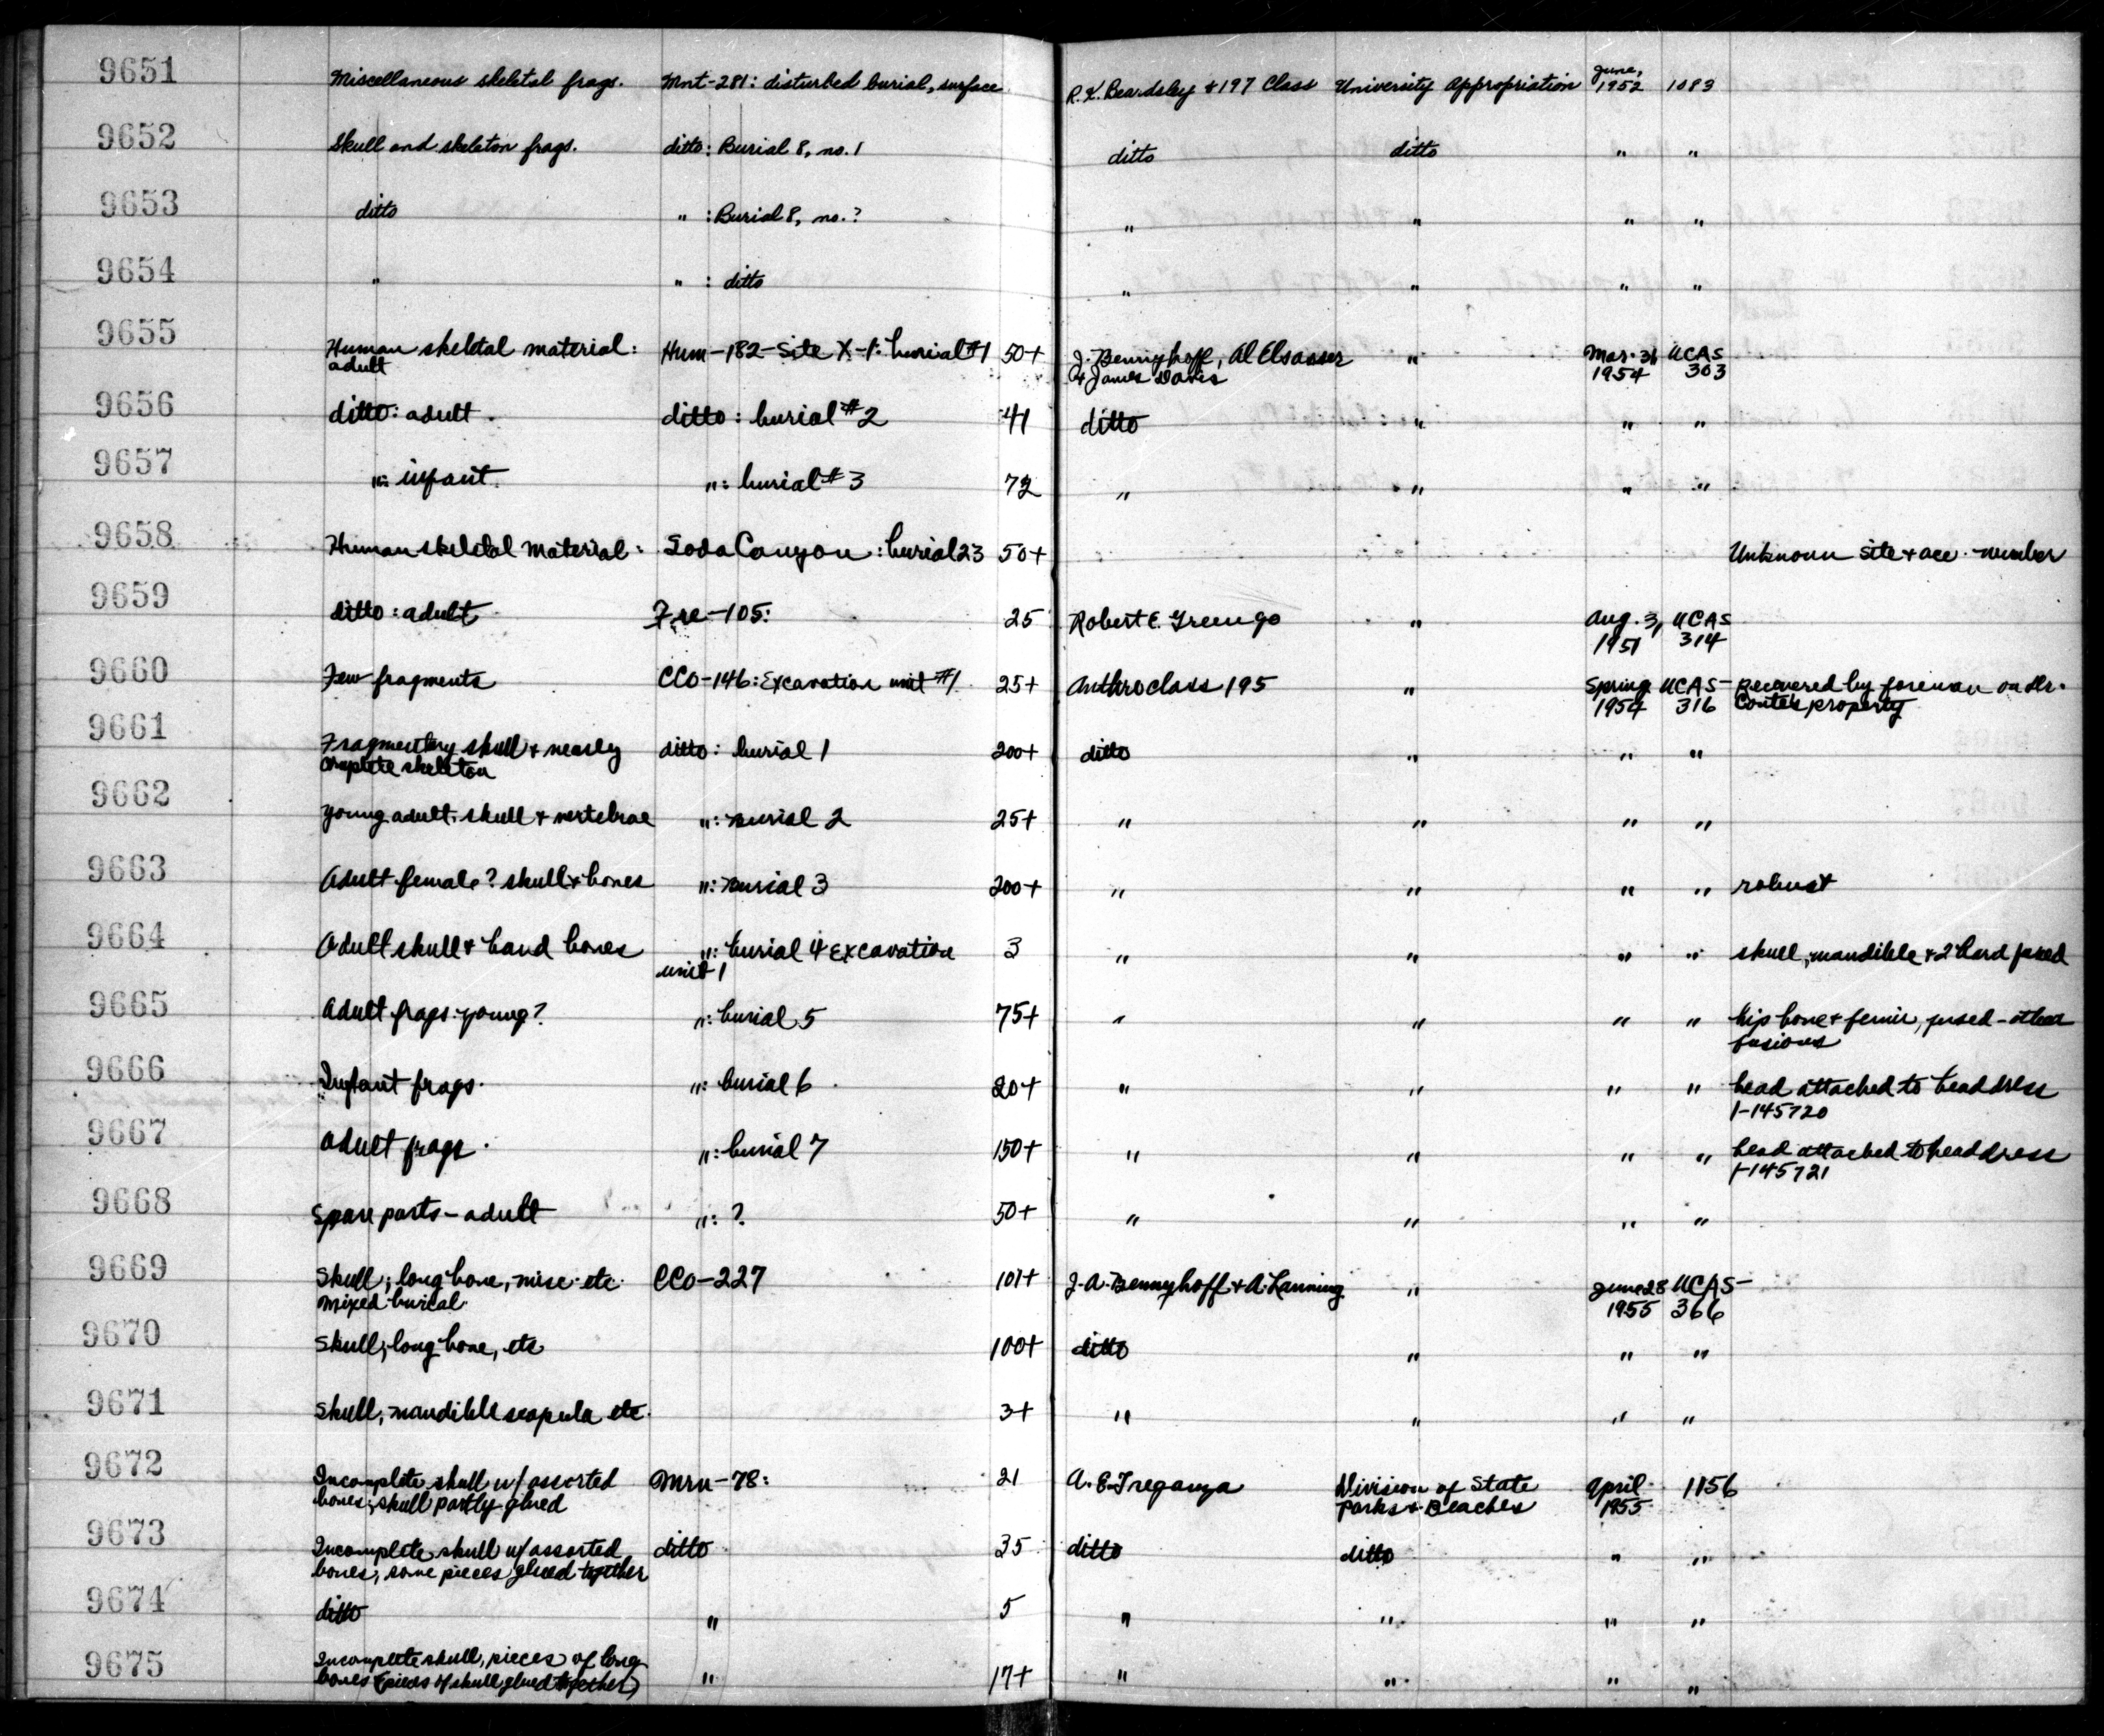 9651 Miscellaneous skeletal frags. Mnt-281: disturbed burial, surface R.K. Beardsley + 197 Class University Appropriation June, 1952 1083
9652 Skull and skeleton frags. ditto: Burial 8, no. 1 ditto ditto " "
9653 ditto " : Burial 8, no. ? " " " "
9654 " " : ditto " " " "
9655 Human skeletal material: Hum-182-Site X-1: burial #1 50+ J. Bennyhoff, Al Elsasser " Mar. 31 UCAS
adult & James Davis 1954 303
9656 ditto: adult. ditto: burial #2 41 ditto " " "
9657 ": infant. ": burial #3 72 " " " "
9658 Human skeletal material: Soda Canyon: burial 23 50+ " Unknown site + acc. number
9659 ditto: adult Fre-105: 25 Robert E. Greengo " Aug. 3, UCAS
1951 314
9660 Few fragments CCO-146: Excavation unit #1 25+ Anthro class 195 " Spring UCAS- Recovered by foreman on Mr.
1954 316 property
9661 Fragmentary skull + nearly ditto: burial 1 200+ ditto " " "
complete skeleton
9662 Young adult, skull + vertebrae ": burial 2 25+ " " " "
9663 Adult female? skull + bones ": burial 3 200+ " " " " robust
9664 Adult skull + hand bones ": burial 4 Excavation 3 " " " " skull, mandible + 2 hand fused
unit 1
9665 Adult frags. young? ": burial 5 75+ " " " " hip bone + femur, fused - other
fusions
9666 Infant frags. ": burial 6 20+ " " " " head attached to headdress
1-145720
9667 Adult frags. ": burial 7 150+ " " " " head attached to headdress
1-145721
9668 Spare parts - adult ": ? 50+ " " " "
9669 Skull, long bone, misc. etc. CCO-227 101+ J.A. Bennyhoff + A. Lanning " June 28 UCAS-
Mixed burial. 1955 366
9670 Skull, long bone, etc 100+ ditto " " "
9671 Skull, mandible scapula etc. 3+ " " " "
9672 Incomplete skull w/ assorted Mrn-78: 21 A. E. Treganza Division of State April 1156
bones; skull partly glued Parks + Beaches 1955
9673 Incomplete skull w/ assorted ditto 35 ditto ditto " "
bones, some pieces glued together
9674 ditto " 5 " " " "
9675 Incomplete skull, pieces of long " 17+ " " " "
bones (pieces of skull glued together)